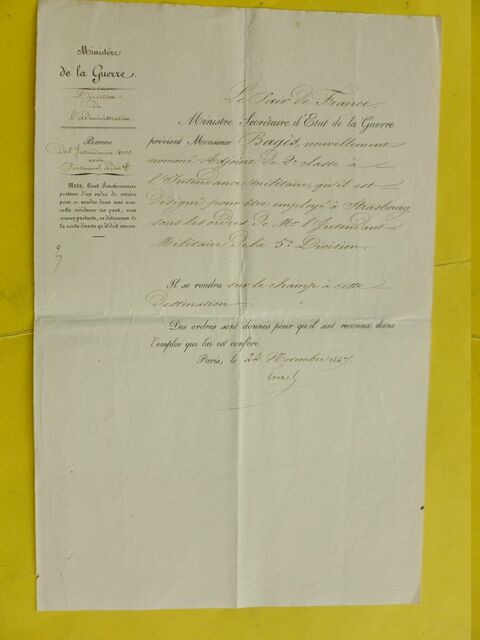 Ministère
de la Guerre.
Direction
de
l'administration.
Bureau
de l'Intendance mre
et du
Personnel admif
Nota. Tout fonctionnaire
porteur d'un ordre de service
pour se rendre dans une nou-
velle résidence ne peut, sous
aucun prétexte, se détourner de
la route directe qu'il doit suivre.
Le Pair de France
Ministre Secrétaire d'Etat de la Guerre
prévient Monsieur Bagès, nouvellement
nommé adjoint de 2e classe à
l'Intendance militaire, qu'il est
désigné pour être employé à Strasbourg,
sous les ordres de Mr l'Intendant
Militaire de la 5me Division.
Il se rendra sur le champ à cette
destination.
Des ordres sont donnés pour qu'il soit reconnu dans
l'emploi qui lui est conféré.
Paris, le 22 Novembre 1847